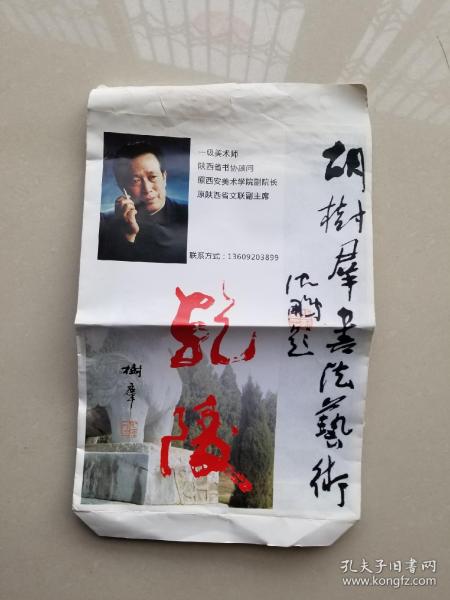 一级美术师
陕西省书协顾问
原西安美术学院副院长
原陕西省文联副主席
联系方式：13609203899
胡樹羣書法藝術
沈鹏题
乾陵
樹羣
孔夫子旧书网
www.kongfz.com